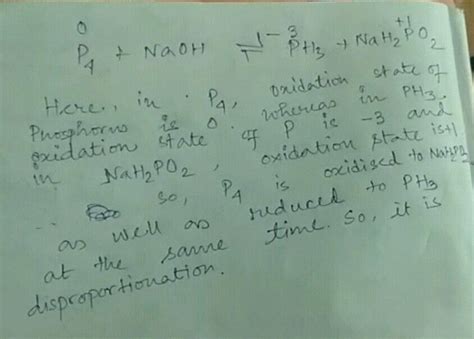 0 -3 +1
P4 + NaOH ⇌ PH3 + NaH2PO2
Here, in P4, oxidation state of
Phosphorus is 0 whereas in PH3
oxidation state of P is -3 and
in NaH2PO2, oxidation state is +1
so, P4 is oxidised to NaH2PO2
as well as reduced to PH3
at the same time. So, it is
disproportionation.